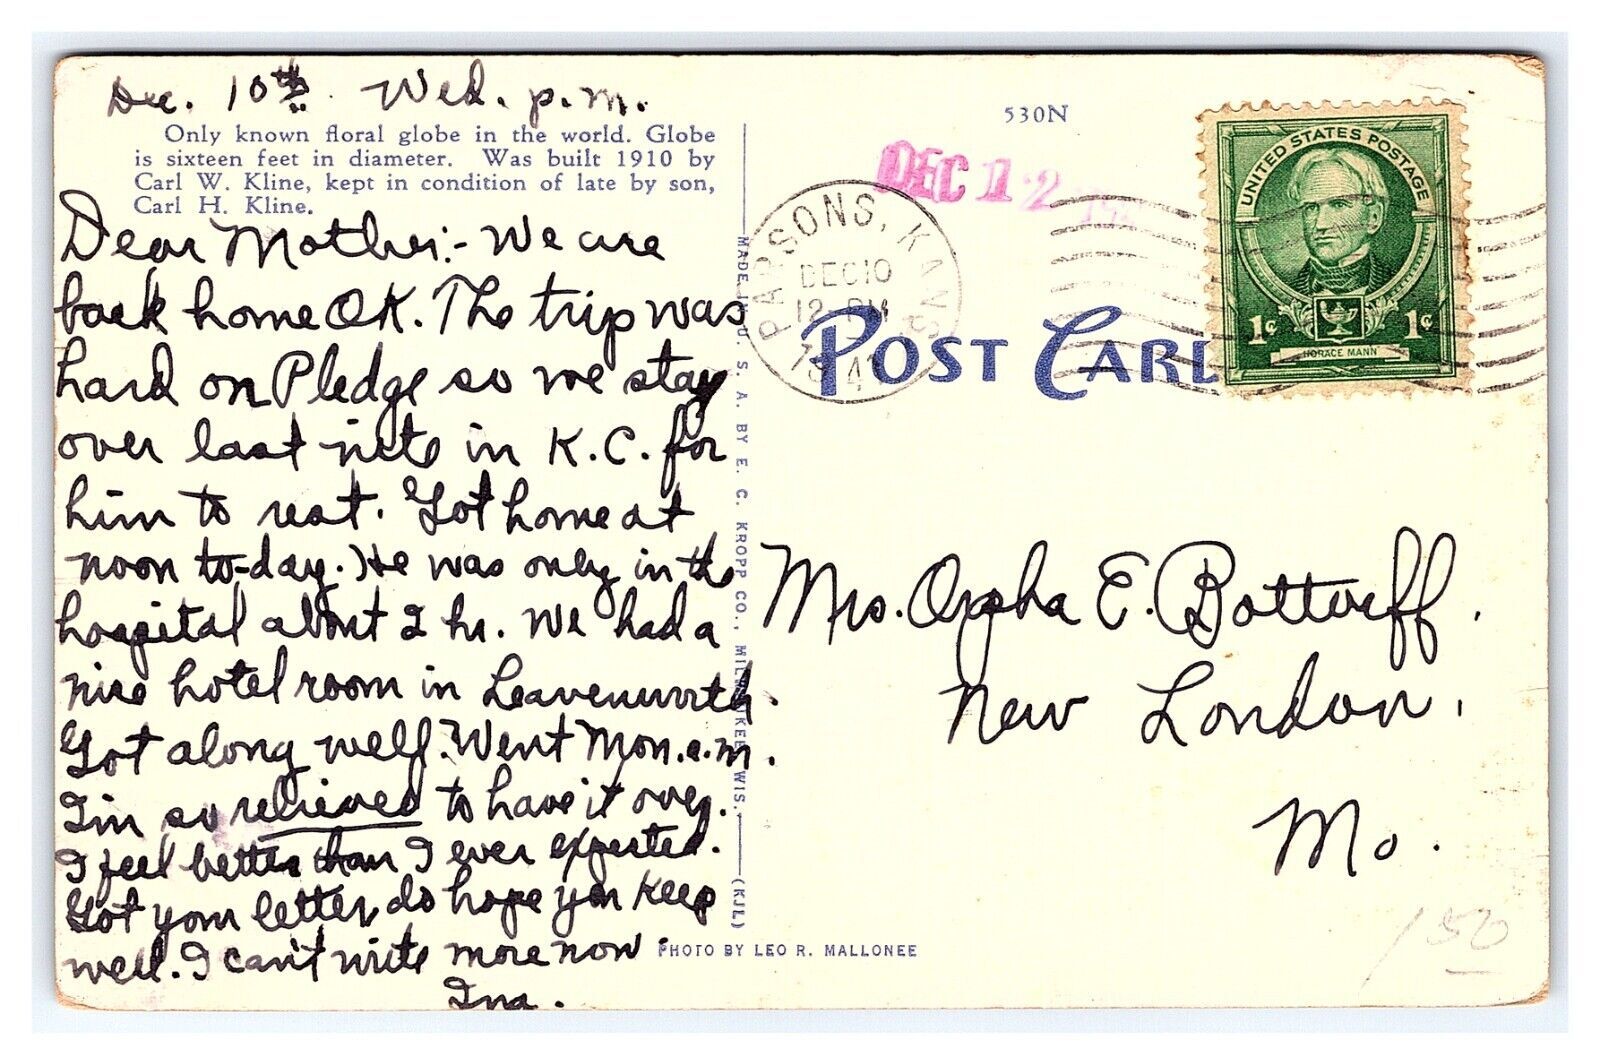 Dec. 10th. Wed. p.m.
Only known floral globe in the world. Globe
is sixteen feet in diameter. Was built 1910 by
Carl W. Kline, kept in condition of late by son,
Carl H. Kline.
Dear Mother:- We are
back home OK. The trip was
hard on Pledge so we stay
over last nite in K.C. for
him to rest. Got home at
noon to-day. He was only in the
hospital about 2 hr. We had a
nice hotel room in Leavenworth.
Got along well. Went Mon. a.m.
I'm so relieved to have it over.
I feel better than I ever expected.
Got your letter, do hope you keep
well. I can't write more now.
Ina.
MADE IN U. S. A. BY E. C. KROPP CO., MILWAUKEE, WIS.
(KJL)
PHOTO BY LEO R. MALLONEE
530N
DEC 12
PARSONS, KANS.
DEC 10
12 PM
1941
POST CARD
UNITED STATES POSTAGE
1c 1c
HORACE MANN
Mrs. Orpha E. Bottorff.
New London.
Mo.
150